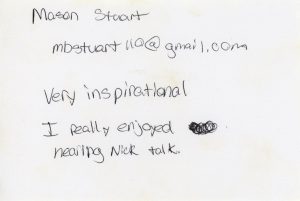 Mason Stuart
mbstuart110@gmail.com
Very inspirational
I really enjoyed
hearing Nick talk.